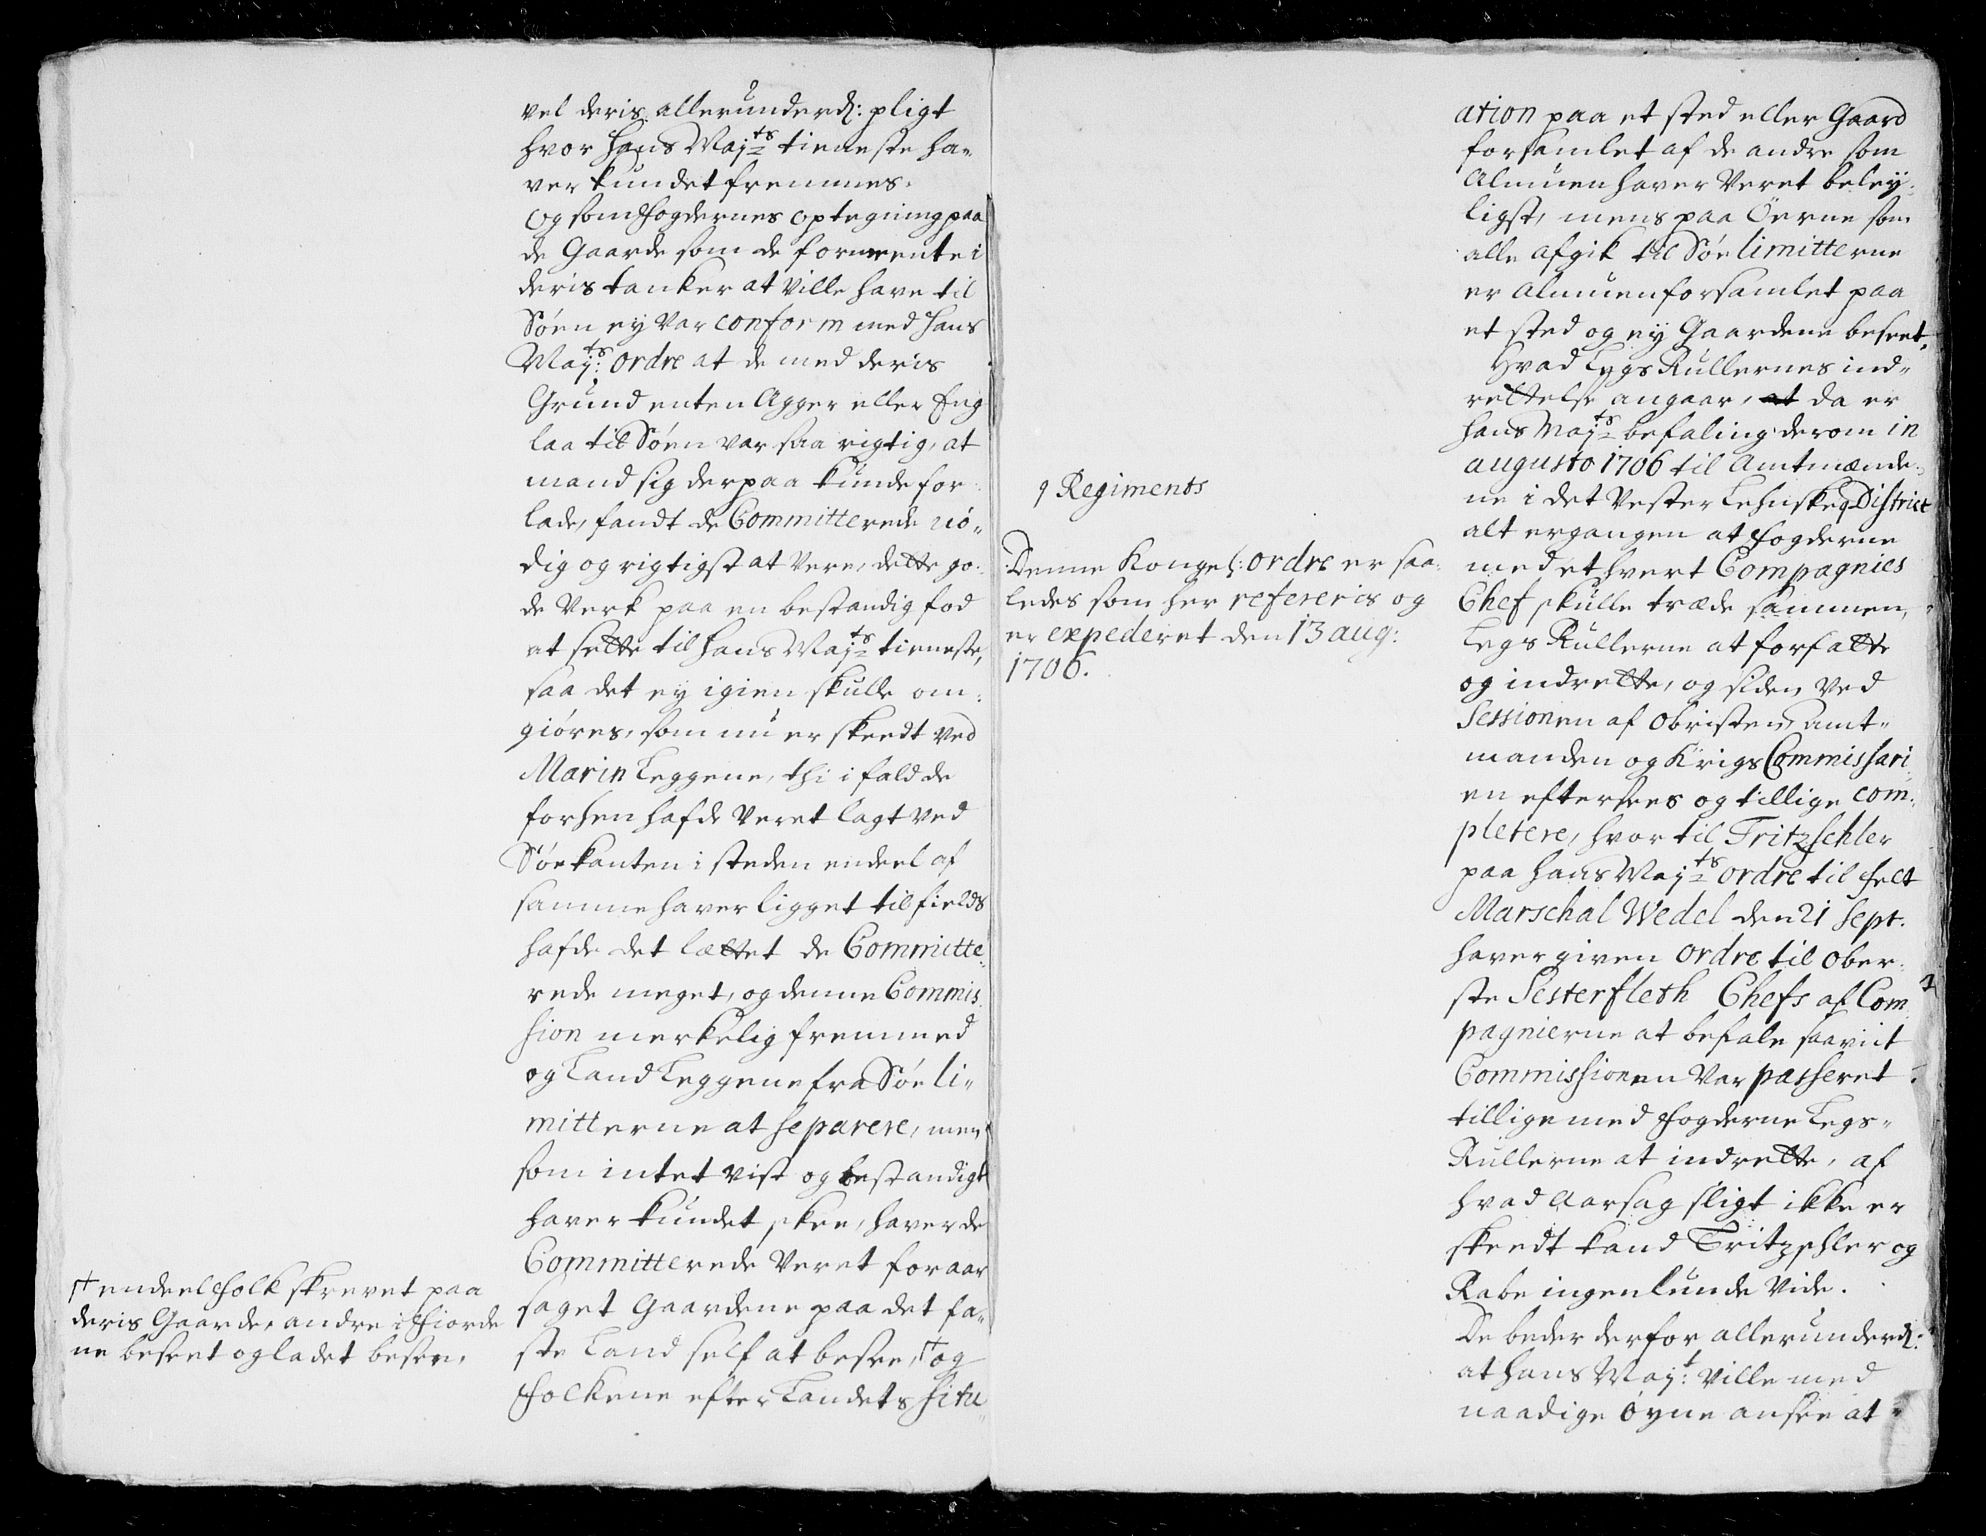 vel deris allerunderd: pligt
hvor hans Maj:ts tieneste ha-
ver kundet fremmes.
og som fogdernes optegning paa
de Gaarde som de formente i
deris tanker at ville have til
Søen ey var conform med hans
Maj:ts ordre at de med deris
Grund enten Agger eller Eng
laa til Søen var saa rigtig, at
mand sig derpaa kunde for-
lade, fandt de Committerede nø-
dig og rigtigst at vere, dette go-
de Verk paa en bestandig fod
at sette til hans Maj:ts tieneste,
saa det ey igien skulle om-
giøres, som nu er skeedt ved
Marin Leggene, thi i fald de
forhen hafde veret lagt ved
Søekanten i steden endeel af
samme haver ligget til fields
hafde det lættet de Committe-
rede meget, og denne Commis-
sion merkelig fremmed
og Land Leggene fra Søe li-
mitterne at separere, men
som intet vist og bestandigt
haver kundet skee, haver de
Committerede veret foraar
saget Gaardene paa det fa-
ste Land self at besee, † og
folkene efter Landets situ-
† endeel folk skrevet paa
deris Gaarde, andre i fiorde
ne beseet og ladet besee,
ation paa et sted eller Gaard
forsamlet af de andre som
Almuen haver veret beley-
ligst, mens paa Öerne som
alle afgik til Søe limitterne
er Almuen forsamlet paa
et sted og ey Gaardene beseet.
Hvad Legs Rullernes ind-
rettelse angaar, at da er
hans Maj:ts befaling derom in
augusto 1706 til Amtmænde-
ne i det Vester Lehnske q District
alt ergangen at fogderne
med ethvert Compagnies
Chef skulle træde sammen,
Legs Rullerne at forfatte
og indrette, og siden ved
Sessionen af obristen, amt-
manden og Krigs Commissari
en eftersees og tillige com-
pletere, hvor til Tritzschler
paa hans Maj:ts ordre til felt
Marschal Wedel den 21 Sept.
haver given ordre til ober-
ste Sesterfleth Chefs af Com-
pagnierne at befale saa vit
Commissionen var passeret
tillige med fogderne Legs-
Rullerne at indrette, af
hvad aarsag sligt ikke er
skeedt kand Tritzschler og
Rabe ingenlunde vide.
De beder derfor allerunderd:
at hans Maj:t ville med
naadige øyne ansee at
q Regiments
Denne Kongel: ordre er saa-
ledes som her refereris og
er expederet den 13 aug:
1706.